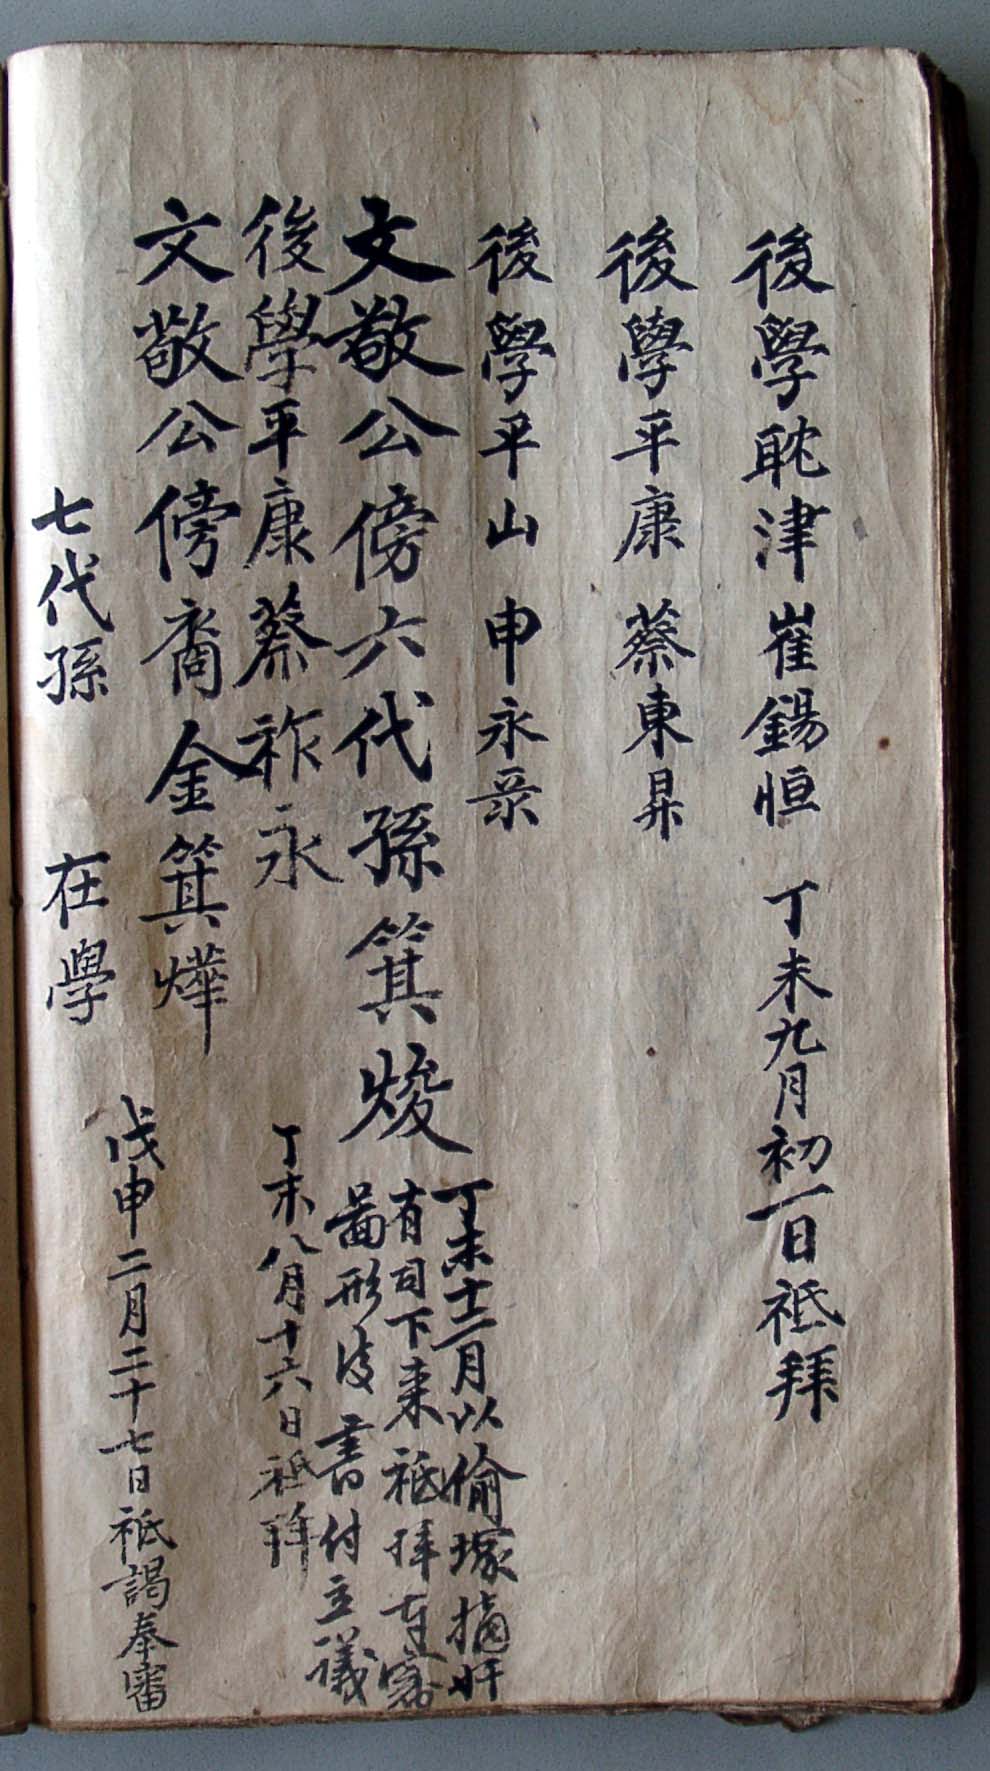 後學耽津崔錫恒 丁未九月初一日祗拜
後學平康蔡東昇
後學平山申永
文敬公傍六代孫箕焌
丁未十二月以偷塚摘奸
有司下来祗拜奉審
圖形後書付立議
後學平康蔡祚永 丁未八月十六日祗拜
文敬公傍裔金箕燁
七代孫 在學 戊申二月二十七日祗謁奉審